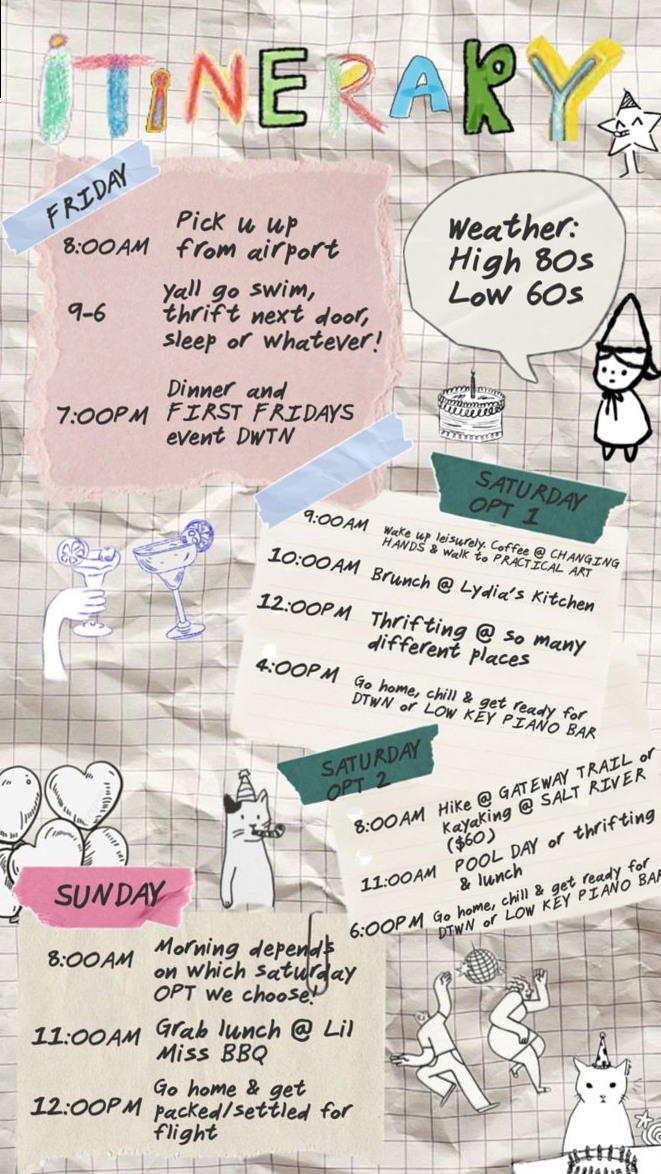 ITINERARY
FRIDAY
8:00AM Pick u up
from airport
9-6 yall go swim,
thrift next door,
sleep or whatever!
7:00PM Dinner and
FIRST FRIDAYS
event DWTN
Weather:
High 80s
Low 60s
SATURDAY
OPT 1
9:00AM Wake up leisurely. Coffee @ CHANGING
HANDS & walk to PRACTICAL ART
10:00AM Brunch @ Lydia's Kitchen
12:00PM Thrifting @ so many
different places
4:00PM Go home, chill & get ready for
DTWN or LOW KEY PIANO BAR
SATURDAY
OPT 2
8:00AM Hike @ GATEWAY TRAIL or
Kayaking @ SALT RIVER
($60)
11:00AM POOL DAY or thrifting
& lunch
6:00PM Go home, chill & get ready for
DTWN or LOW KEY PIANO BAR
SUNDAY
8:00AM Morning depends
on which saturday
OPT we choose!
11:00AM Grab lunch @ Lil
Miss BBQ
12:00PM Go home & get
packed/settled for
flight